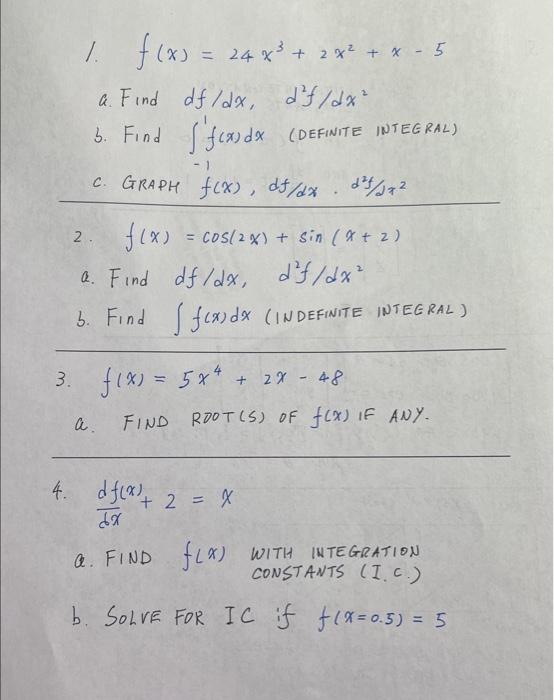 1. f(x) = 24x³ + 2x² + x - 5
a. Find df/dx, d²f/dx²
b. Find ∫₋₁¹ f(x)dx (DEFINITE INTEGRAL)
c. GRAPH f(x), df/dx . d²f/dx²
2. f(x) = cos(2x) + sin(x + 2)
a. Find df/dx, d²f/dx²
b. Find ∫ f(x)dx (INDEFINITE INTEGRAL)
3. f(x) = 5x⁴ + 2x - 48
a. FIND ROOT(S) OF f(x) IF ANY.
4. df(x)/dx + 2 = x
a. FIND f(x) WITH INTEGRATION
CONSTANTS (I.C.)
b. SOLVE FOR IC if f(x=0.5) = 5